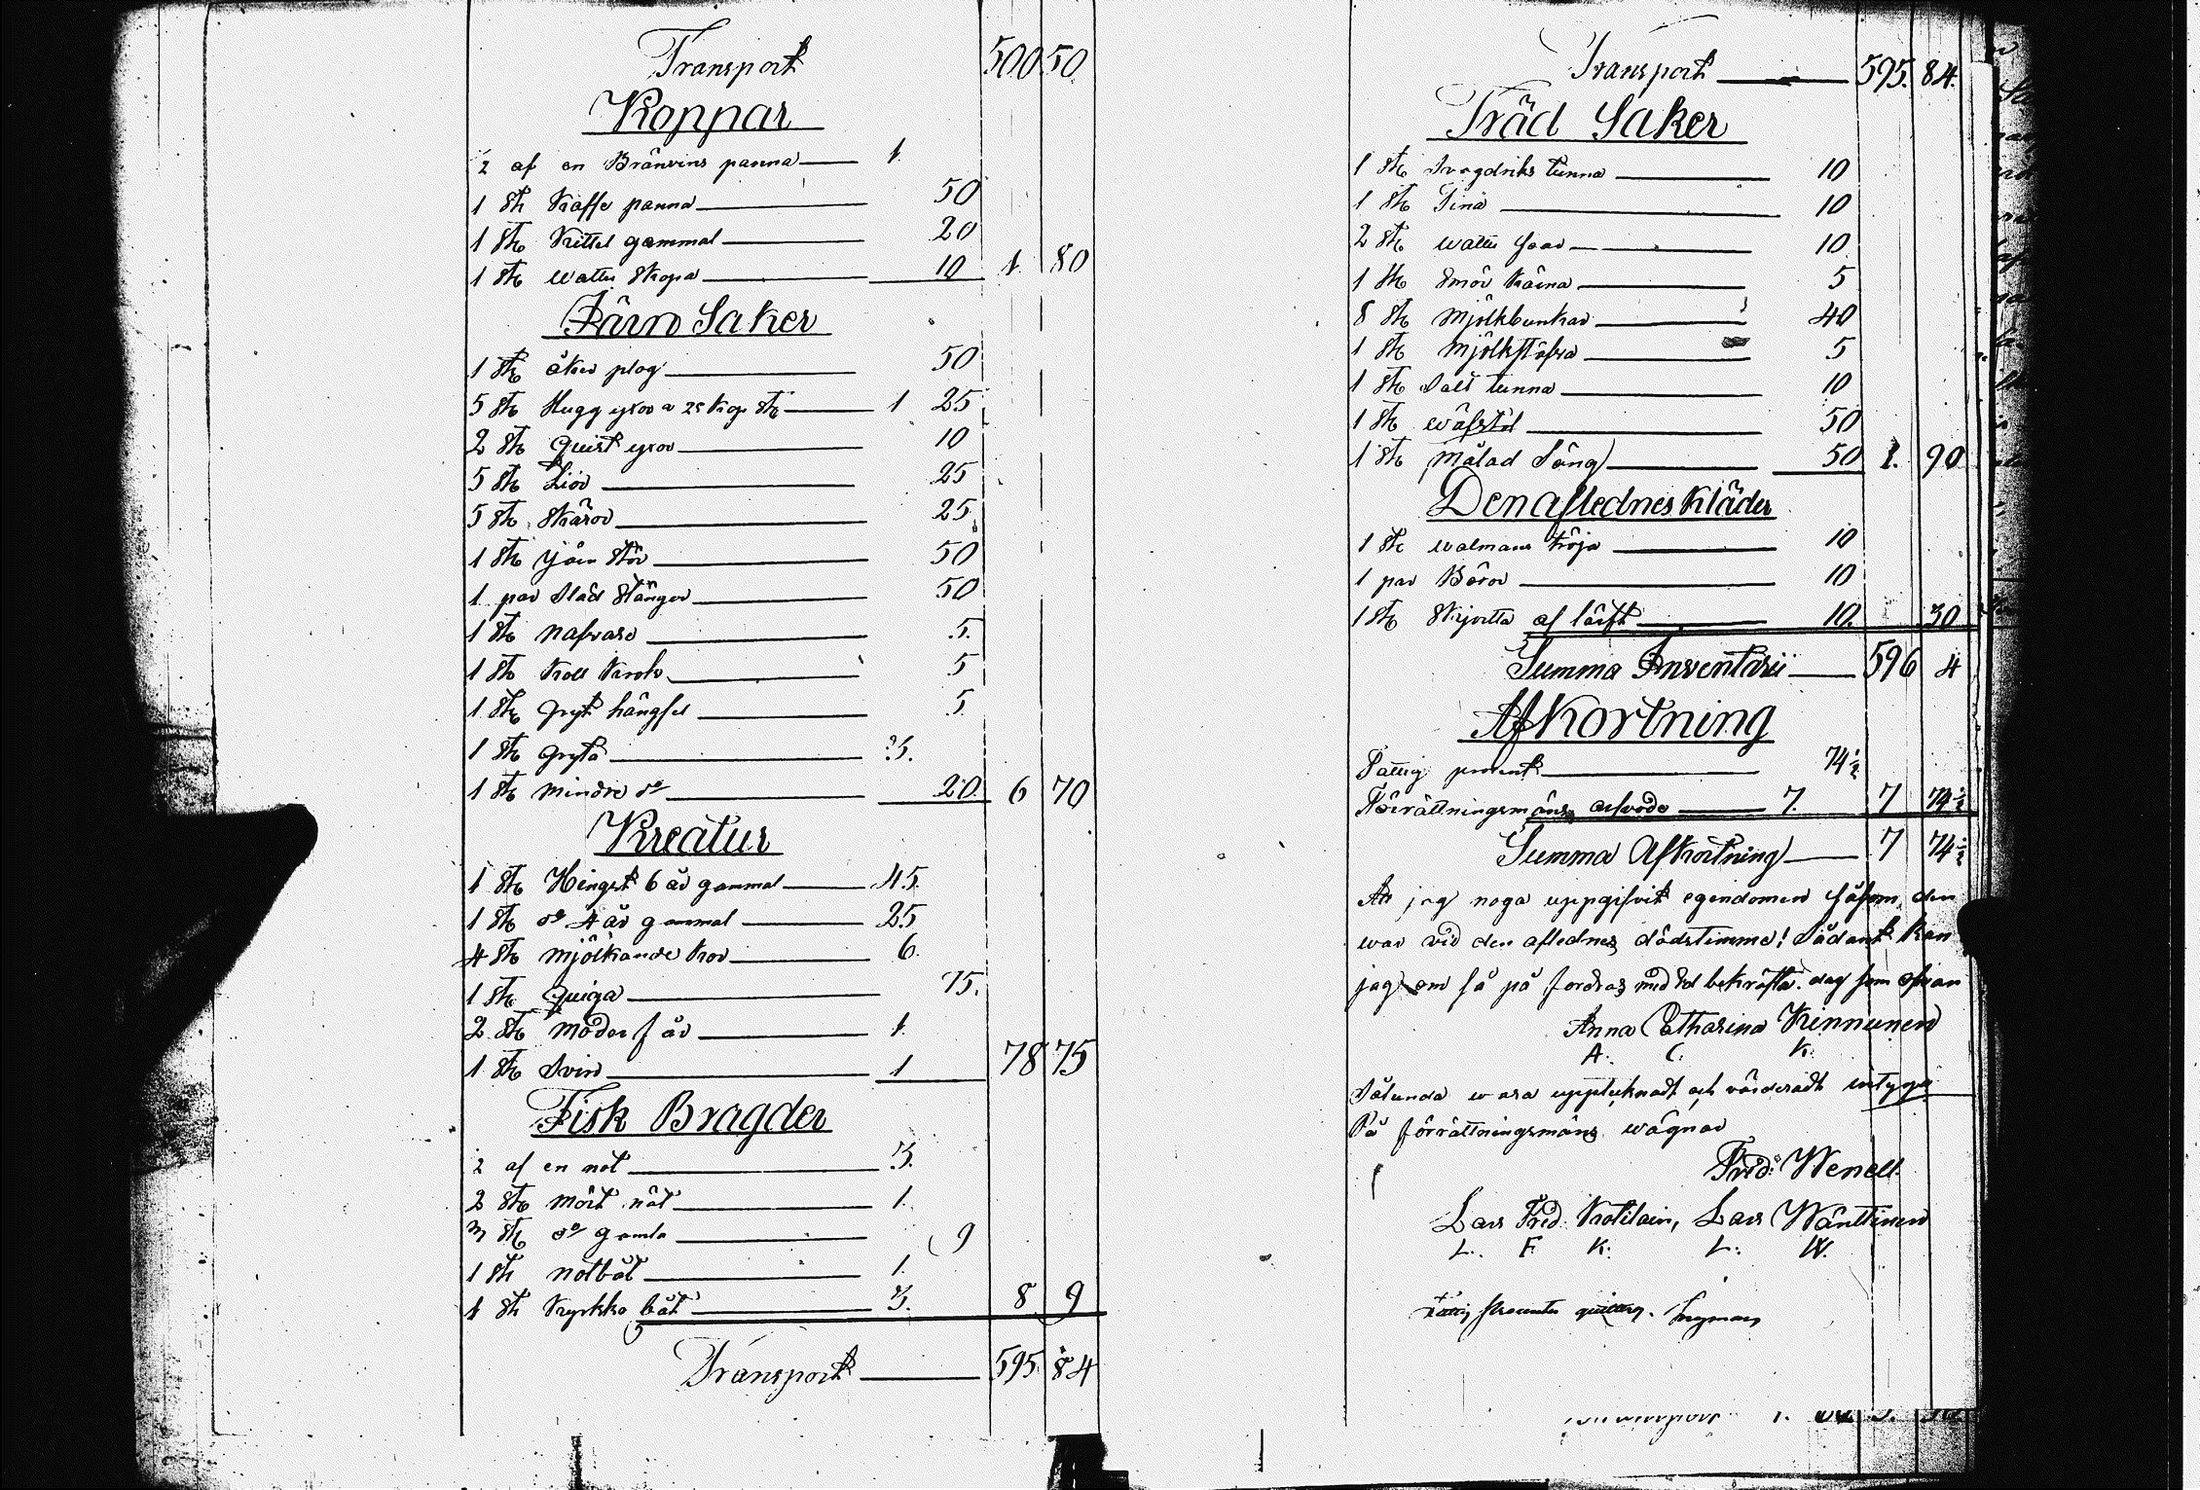 Transport 500 50
Koppar
½ af en Bränvins panna 1.
1 stk Kaffe panna 50
1 stk Kittel gammal 20
1 stk wattu skopa 10 1. 80
Järn Saker
1 stk åker plog 50
5 stk Hugg yxor a 25 kop stk 1 25
2 stk quist yxor 10
5 stk Lior 25
5 stk Skäror 25
1 stk järn stör 50
1 par släd stänger 50
1 stk nafvare 5.
1 stk Koll Krok 5
1 stk gryt hängsel 5
1 stk gryta 3.
1 stk mindre do 20 6 70
Kreatur
1 stk Hingst 6 år gammal 45.
1 stk do 4 år gammal 25.
4 stk mjölkande kor 6.
1 stk Quiga 75.
2 stk moder får 1.
1 stk Svin 1 78 75
Fisk Bragder
½ af en not 3.
2 stk mört nät 1.
3 stk do gamla 9
1 stk notbåt 1.
1 stk Kyrkko båt 3. 8 9
Transport 595 84
Transport 595. 84.
Träd Saker
1 stk Svagdriks tunna 10
1 stk Tina 10
2 stk wattu saar 10
1 stk Smör kärna 5
8 stk mjölkbunkar 40
1 stk mjölkstäfva 5
1 stk Salt tunna 10
1 stk wäfstol 50
1 stk målad Säng 50 1. 90
Den aflednes Kläder
1 stk walmans tröja 10
1 par Böxor 10
1 stk Skjorta af lärft 10. 30
Summa Inventarii 596 4
Afkortning
Fattig procent 74½
Förrättningsmäns arfvode 7. 7 74½
Summa Afkortning 7 74½
At jag noga uppgifvit egendomen såsom den
war vid den aflednes dödstimme! Sådant kan
jag om så på fordras med Ed bekräfta. dag som ofvan
Anna Catharina Kinnunen
A. C. K.
Sålunda wara uppteknadt och värderadt intyga
På förrättningsmäns wägnar
Frid: Wenell.
Lars Frid. Kotilain, Lars Wänttinen
L. F. K. L. W.
Fattig Procenten quitteras.